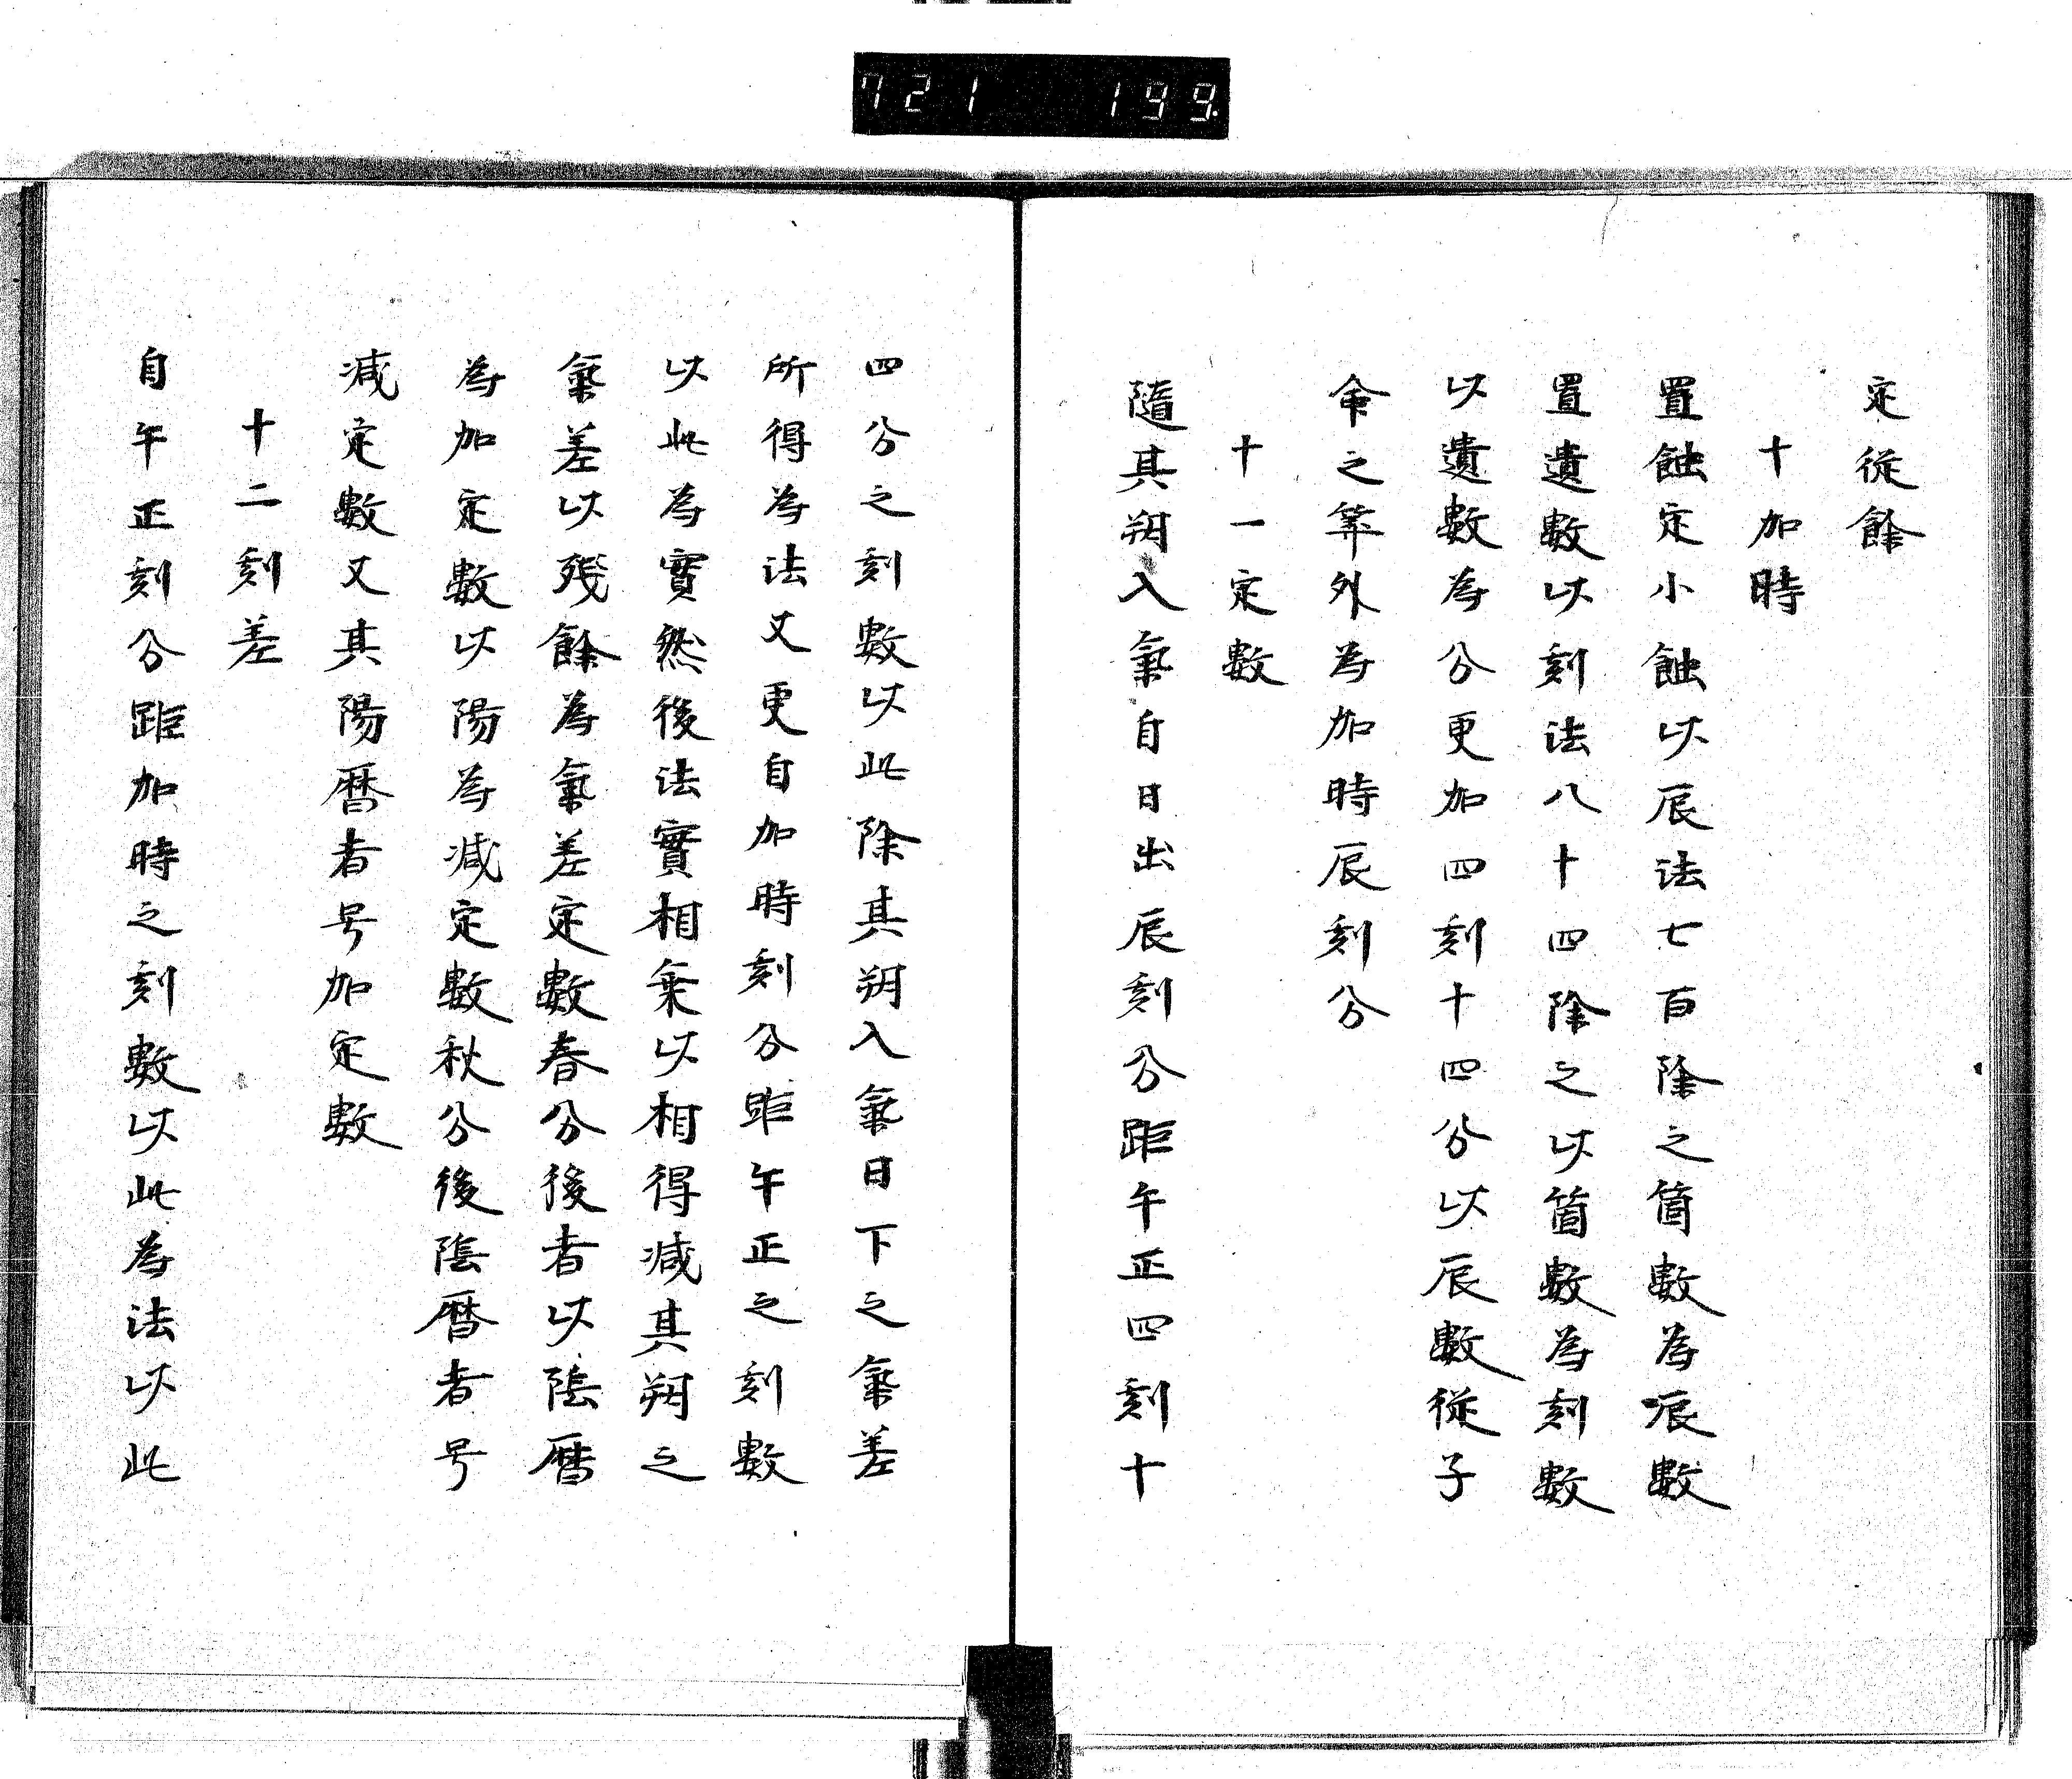 721 199.
定従餘
十加時
置蝕定小蝕以辰法七百除之箇數為辰數
置遺數以刻法八十四除之以箇數為刻數
以遺數為分更加四刻十四分以辰數従子
命之筭外為加時辰刻分
十一定數
隨其朔入氣自日出辰刻分距午正四刻十
四分之刻數以此除其朔入氣日下之氣差
所得為法又更自加時刻分距午正之刻數
以此為實然後法實相乗以相得減其朔之
氣差以残餘為氣差定數春分後者以陰暦
為加定數以陽為減定數秋分後陰暦者号
減定數又其陽暦者号加定數
十二刻差
自午正刻分距加時之刻數以此為法以此